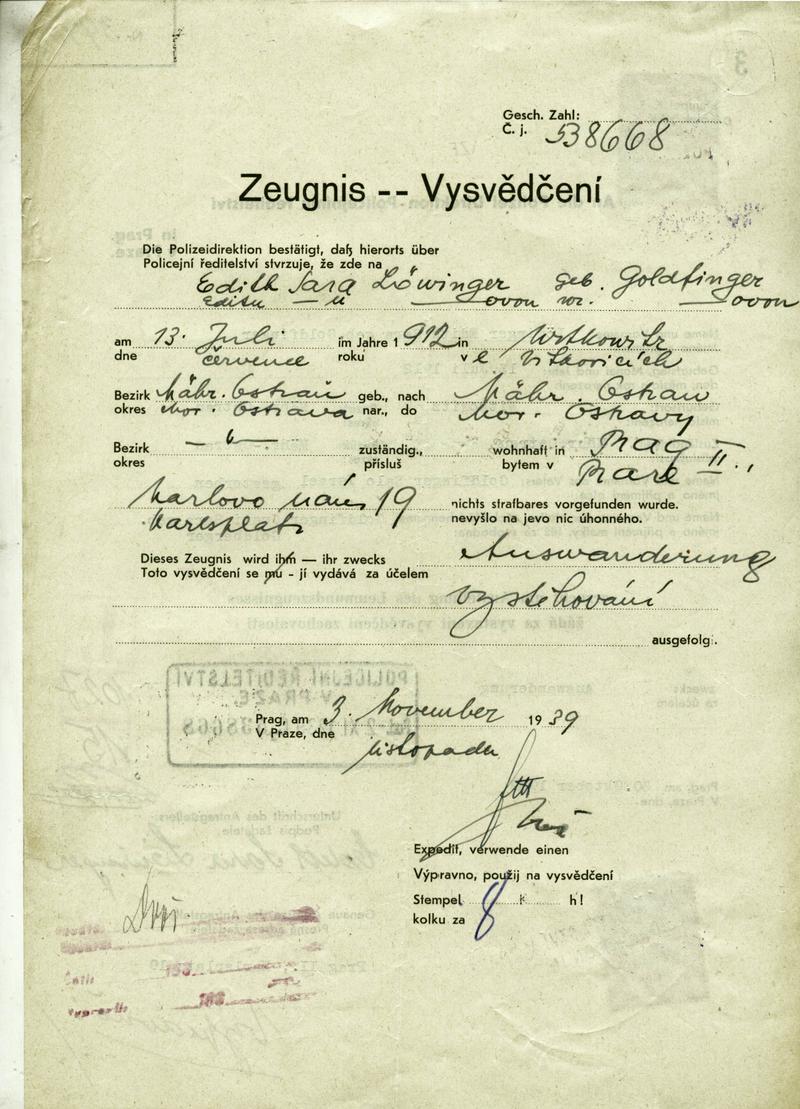 Gesch. Zahl:
Č. j. 538668
Zeugnis -- Vysvědčení
Die Polizeidirektion bestätigt, daß hierorts über
Policejní ředitelství stvrzuje, že zde na
Edith Sara Löwinger geb. Goldfinger
Editu — u — ovou roz. — ovou
am 13. Juli im Jahre 1912 in Witkowitz
dne července roku v e Vitkovicích
Bezirk Mähr. Ostrau geb., nach Mähr. Ostrau
okres Mor. Ostrava nar., do Mor. Ostravy
Bezirk — " — zuständig., wohnhaft in Prag II.,
okres přísluš bytem v Praze
Karlovo nám 19 nichts strafbares vorgefunden wurde.
Karlsplatz nevyšlo na jevo nic úhonného.
Dieses Zeugnis wird ihm — ihr zwecks Auswanderung
Toto vysvědčení se mu - jí vydává za účelem
vystěhování
ausgefolg.
POLICEJNÍ ŘEDITELSTVÍ
V PRAZE
Prag, am 3. November 1939
V Praze, dne listopadu
Expedit, verwende einen
Výpravno, použij na vysvědčení
Stempel 8 K h!
kolku za